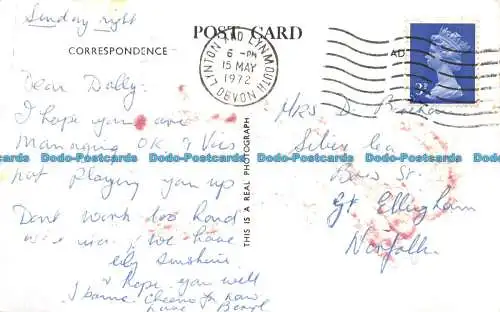 Sunday night
POST CARD
CORRESPONDENCE
AD
LYNTON AND LYNMOUTH
6 - PM
15 MAY
1972
DEVON
3P
Dear Dolly:
I hope you are
managing OK & Vics
not playing you up
Dont work too hard
we have
sunshine
& Hope you well
Cheerio for now
love Beryl
THIS IS A REAL PHOTOGRAPH
Mrs D.
Silver Lea
Bow St.
Gt. Ellingham
Norfolk.
Dodo-Postcards Dodo-Postcards Dodo-Postcards Dodo-Postcards Dodo-Postcards